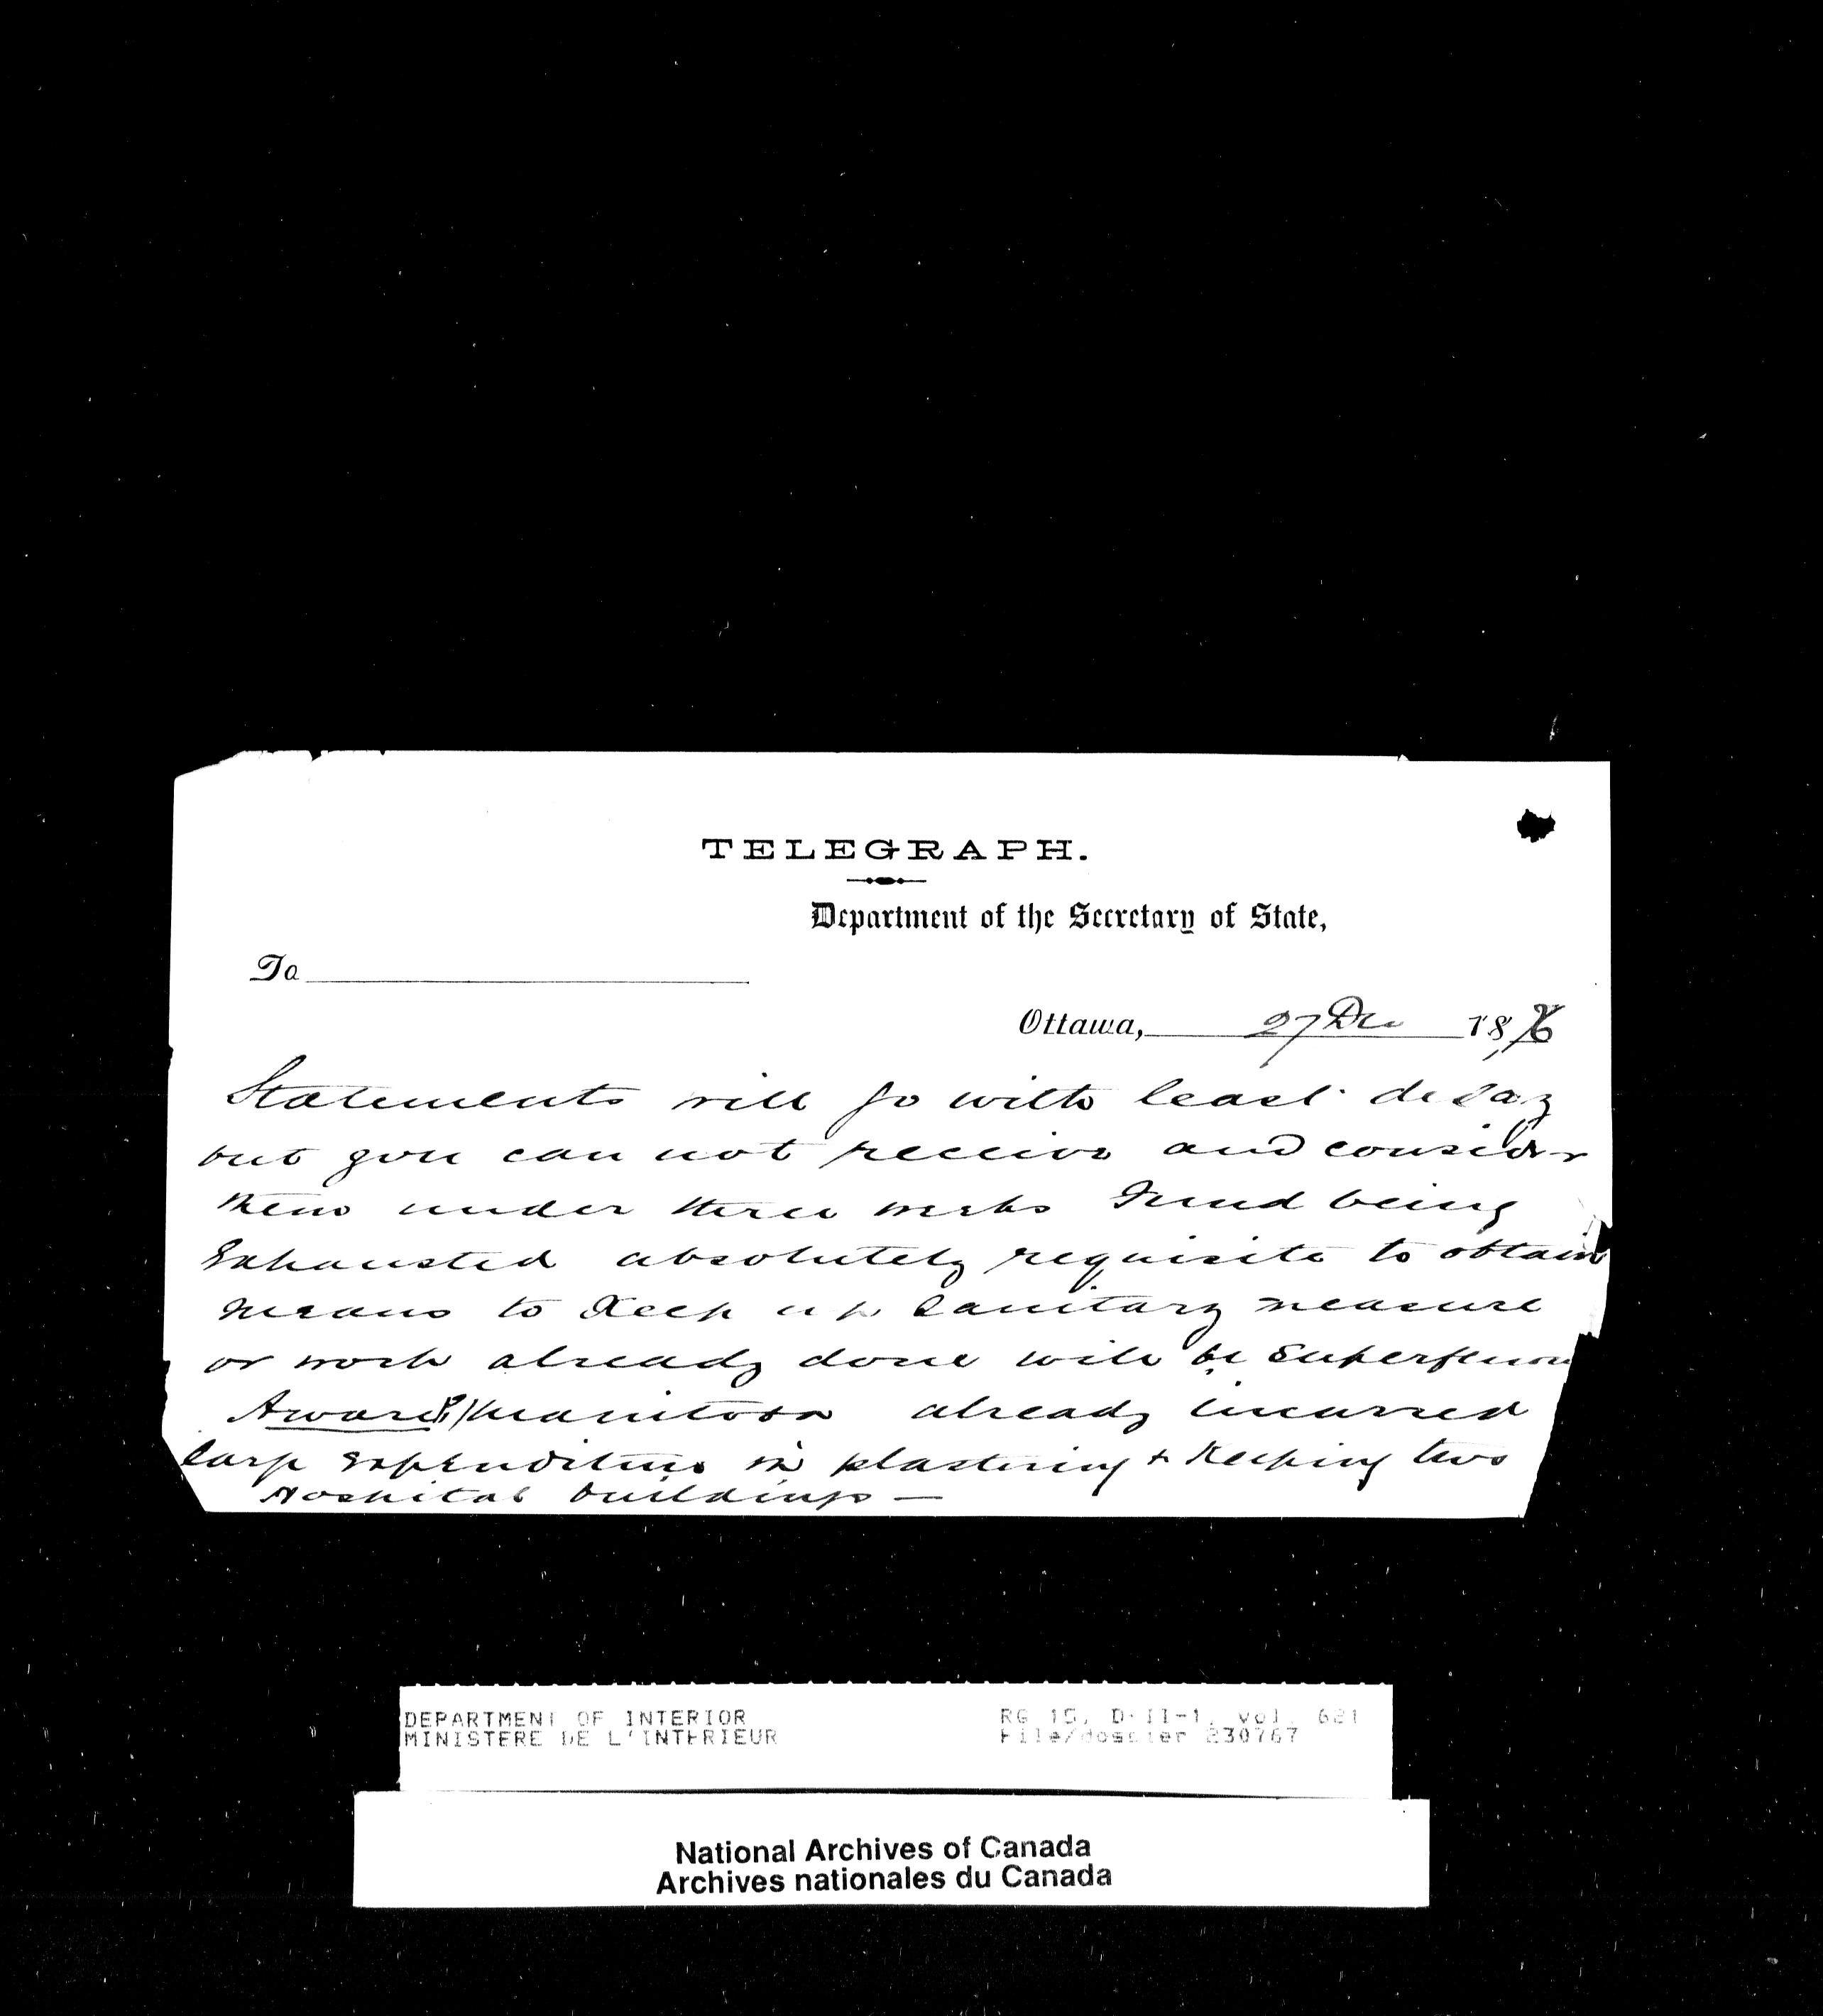 TELEGRAPH.
Department of the Secretary of State,
To
Ottawa, 27 Dec 1876
Statements will go with least delay
but you can not receive and consider
them under three weeks Fund being
Exhausted absolutely requisite to obtain
means to Keep up Sanitary measure
or work already done will be Superfluous
Manitoba already incurred
large expenditure in plastering & Keeping two
Hospital buildings —
DEPARTMENT OF INTERIOR
MINISTERE DE L'INTERIEUR
RG 15, D-II-1, vol. 621
File/dossier 230767
National Archives of Canada
Archives nationales du Canada